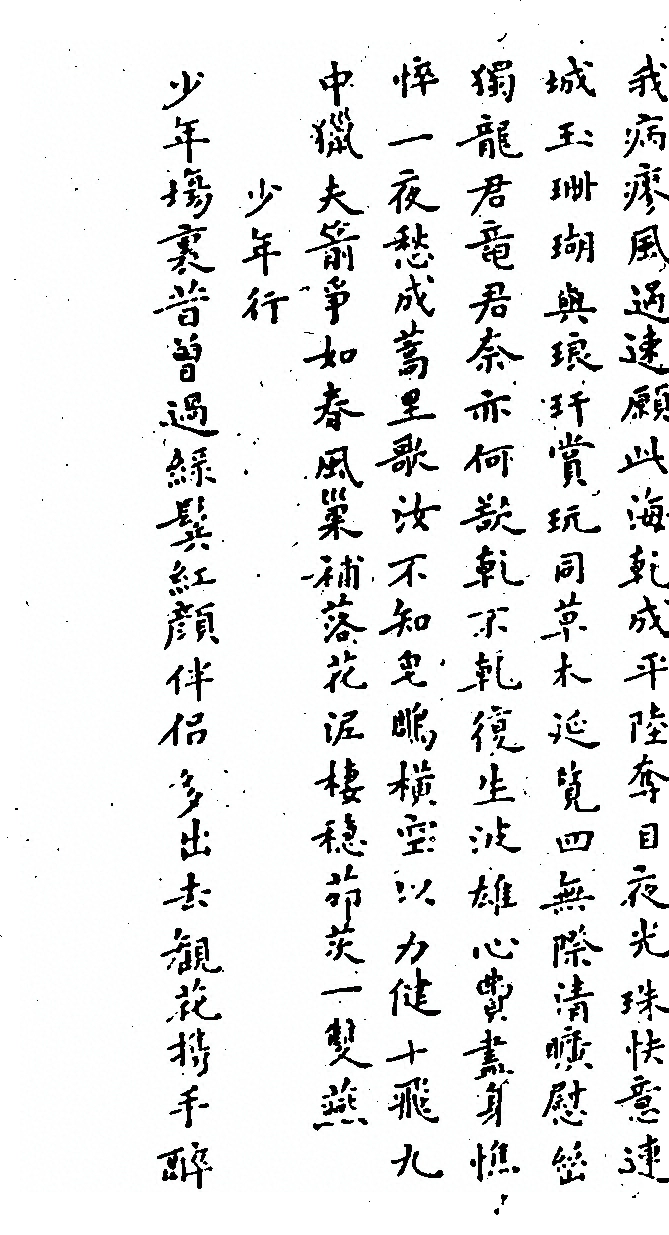 我病瘳風過速願此海乾成平陸奪目夜光珠快意連
城玉珊瑚與琅玕賞玩同草木延覽四無際清曠慰幽
獨龍君竜君奈亦何歎乾不乾復生波雄心費盡身憔
悴一夜愁成蒿里歌汝不知皂鵰橫空以力健十飛九
中獵夫箭爭如春風巢補落花泥棲穏茆茨一雙燕
少年行
少年場裏昔曾過綠鬓紅顔伴侶多出去観花携手醉